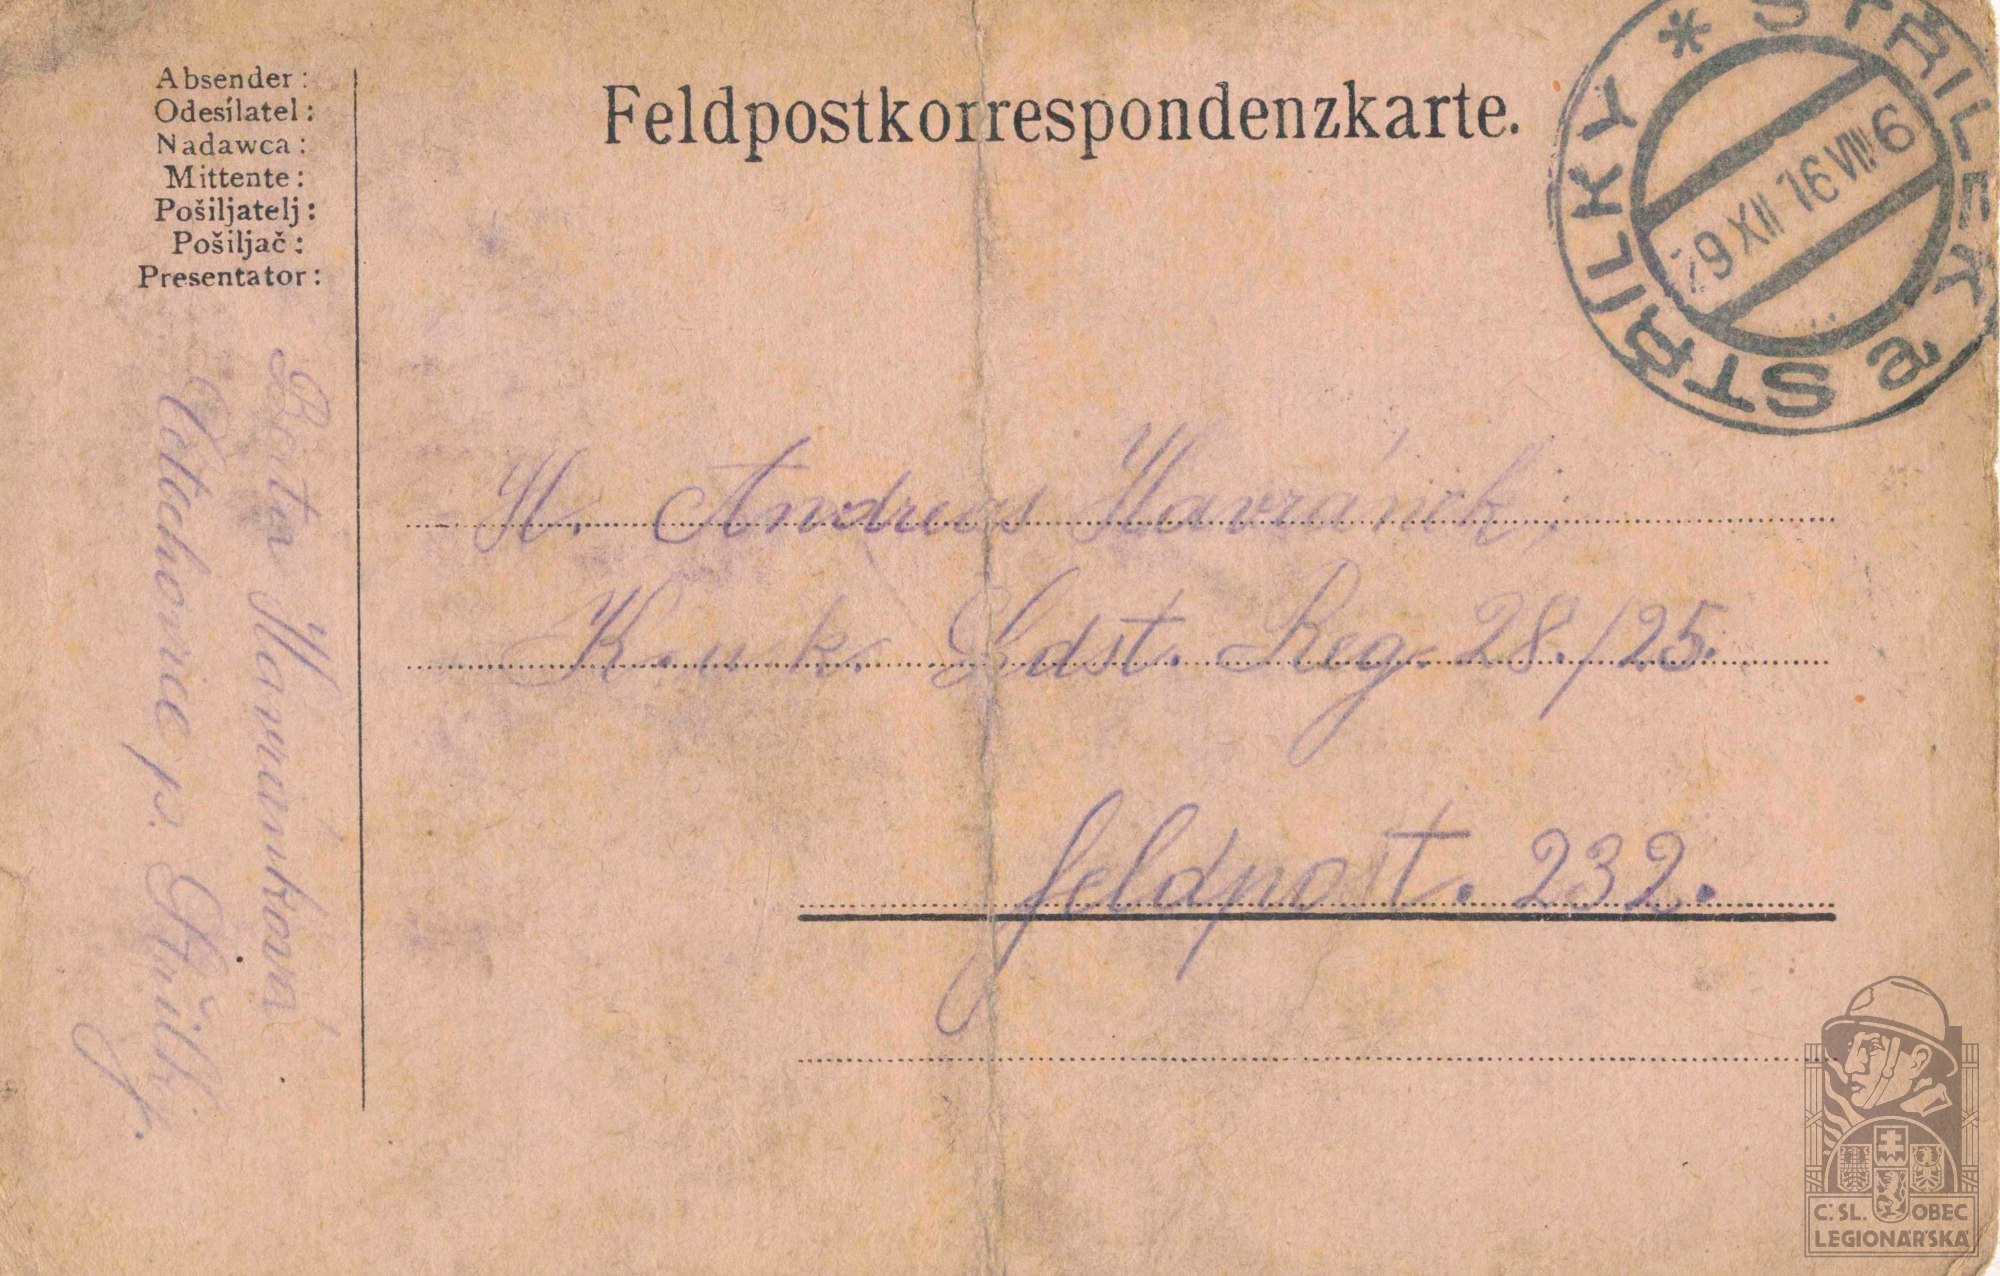 Absender:
Odesílatel:
Nadawca:
Mittente:
Pošiljatelj:
Pošiljač:
Presentator:
Feldpostkorrespondenzkarte.
STŘILEK
STŘILKY * STŘILEK
29 XII 16 VIII 6
H. Andreas Havránek,
K. u. k. Ldst. Reg. 28./25.
feldpost. 232.
Havránková
Cetechovice p. Střílky.
Č. SL. OBEC
LEGIONÁŘSKÁ